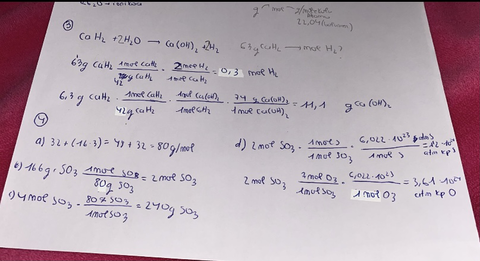 g mol
③
CaH₂ +2H₂O → Ca(OH)₂ + 2H₂
63g CaH₂ → mol H₂?
6,3g CaH₂ · 1mol CaH₂ / 42g CaH₂ · 2mol H₂ / 1mol CaH₂ = 0,3 mol H₂
6,3g CaH₂ · 1mol CaH₂ / 42g CaH₂ · 1mol Ca(OH)₂ / 1mol CaH₂ · 74 g Ca(OH)₂ / 1mol Ca(OH)₂ = 11,1 g Ca(OH)₂
④
a) 32+(16·3) = 48+32 = 80g/mol
166g · SO₃ 1mol SO₃ / 80g SO₃ = 2mol SO₃
4mol SO₃ · 80g SO₃ / 1mol SO₃ = 240g SO₃
d) 2mol SO₃ · 1mol S / 1mol SO₃ · 6,022·10²³ / 1mol S
2mol SO₃ · 3mol O₃ / 1mol SO₃ · 6,022·10²³ / 1mol O₃ = 3,61·10²⁴